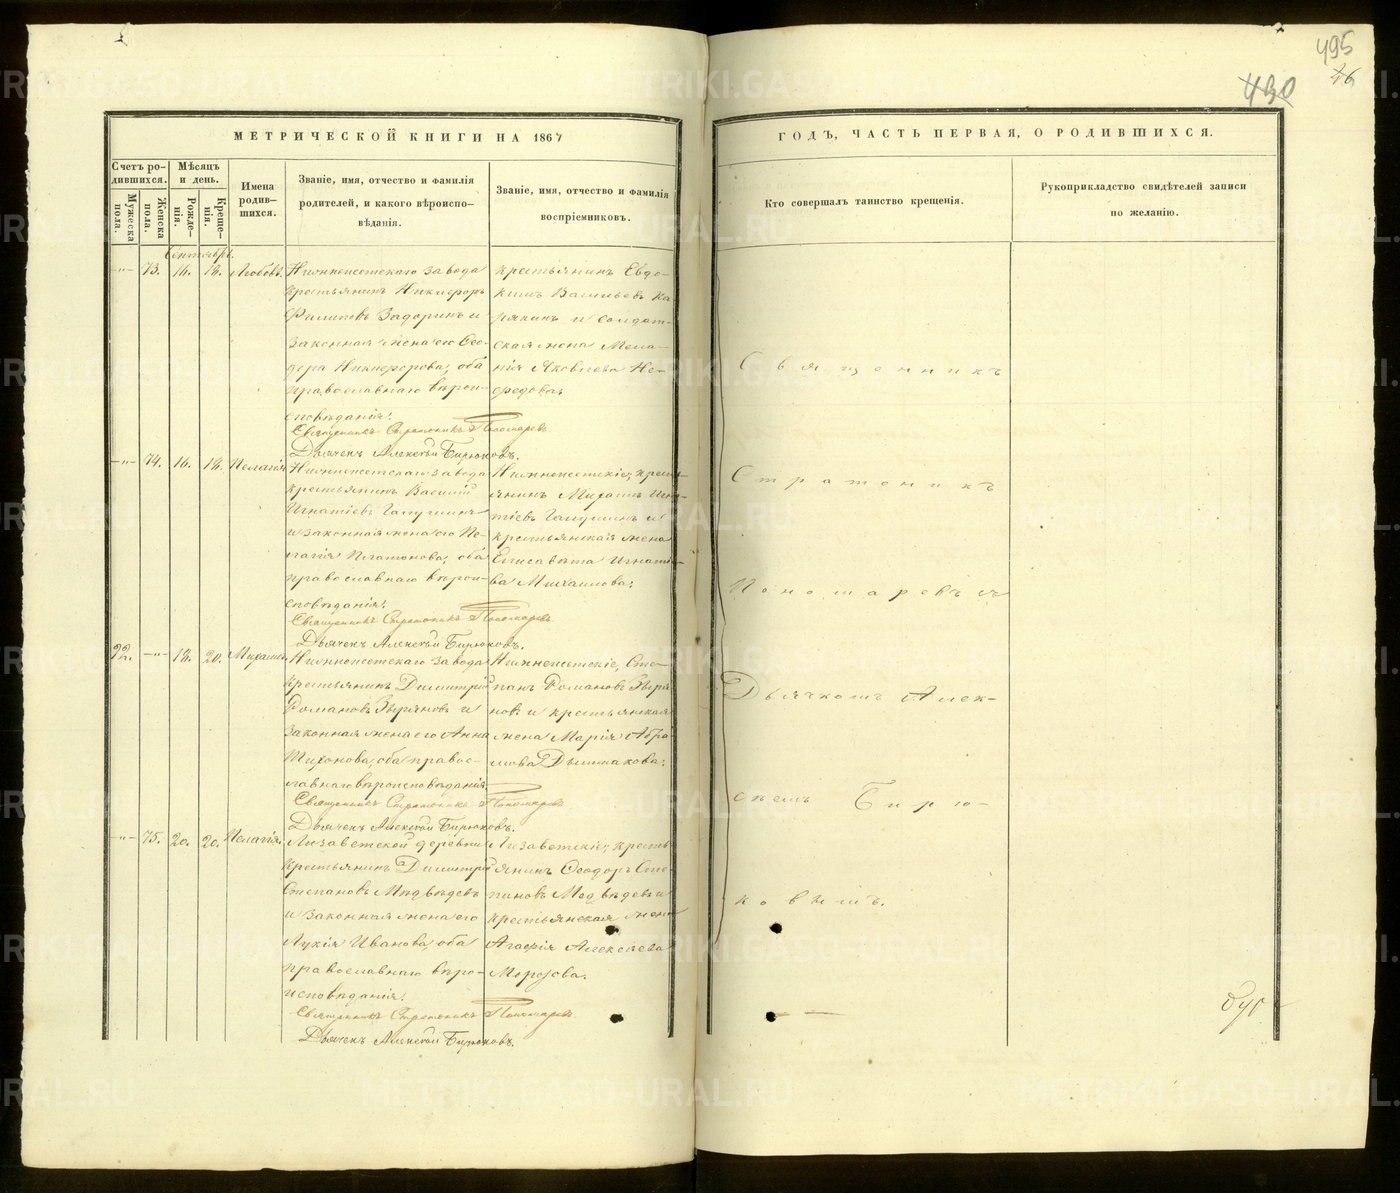 495
46
430
МЕТРИЧЕСКОЙ КНИГИ НА 1867
ГОДЪ, ЧАСТЬ ПЕРВАЯ, О РОДИВШИХСЯ.
Счетъ ро-
дившихся.
Мужеска
пола.
Женска
пола.
Мѣсяцъ
и день.
Рожде-
нія.
Креще-
нія.
Имена
родив-
шихся.
Званіе, имя, отчество и фамилія
родителей, и какого вѣроиспо-
вѣданія.
Званіе, имя, отчество и фамилія
воспріемниковъ.
Кто совершалъ таинство крещенія.
Рукоприкладство свидѣтелей записи
по желанію.
Сентябрь.
-"- 73. 16. 18. Любовь.
Нижнеисетскаго завода
крестьянинъ Никифоръ
Филиповъ Задоринъ и
законная жена его Ѳео-
дора Никифорова; оба
православнаго вѣрои-
сповѣданія.
Священникъ Стратоникъ Пономаревъ
Дьячекъ Алексѣй Бирюковъ.
крестьянинъ Евдо-
кимъ Васильевъ Ка-
рякинъ и солдат-
ская жена Мела-
нія Яковлева Не-
федова.
-"- 74. 16. 18. Пелагія
Нижнеисетскаго завода
крестьянинъ Василій
Игнатіевъ Галушинъ
и законная жена его Пе-
лагія Платонова, оба
православнаго вѣрои-
сповѣданія.
Священникъ Стратоникъ Пономаревъ
Дьячекъ Алексѣй Бирюковъ.
Нижнеисетскіе; кресть-
янинъ Михаилъ Игна-
тіевъ Галушинъ и
крестьянская жена
Елисавета Игнатіе-
ва Михаилова;
92. -"- 18. 20. Михаилъ.
Нижнеисетскаго завода
крестьянинъ Димитрій
Романовъ Зыряновъ и
законная жена его Анна
Тихонова, оба правос-
лавнаго вѣроисповѣданія.
Священникъ Стратоникъ Пономаревъ
Дьячекъ Алексѣй Бирюковъ.
Нижнеисетскіе, Сте-
панъ Романовъ Зыря-
новъ и крестьянская
жена Марія Абра-
мова Дылтакова;
-"- 75. 20. 20. Пелагія.
Лизаветской деревни
крестьянинъ Димитрій
Степановъ Медвѣдевъ
и законная жена его
Лукія Иванова, оба
православнаго вѣро-
исповѣданія.
Священникъ Стратоникъ Пономаревъ
Дьячекъ Алексѣй Бирюковъ.
Лизаветскіе; кресть-
янинъ Ѳеодоръ Сте-
пановъ Медвѣдевъ и
крестьянская жена
Агафія Алексѣева
Морозова.
Священникъ
Стратоникъ
Пономаревъ съ
Дьячкомъ Алек-
сѣемъ Бирю-
ковымъ.